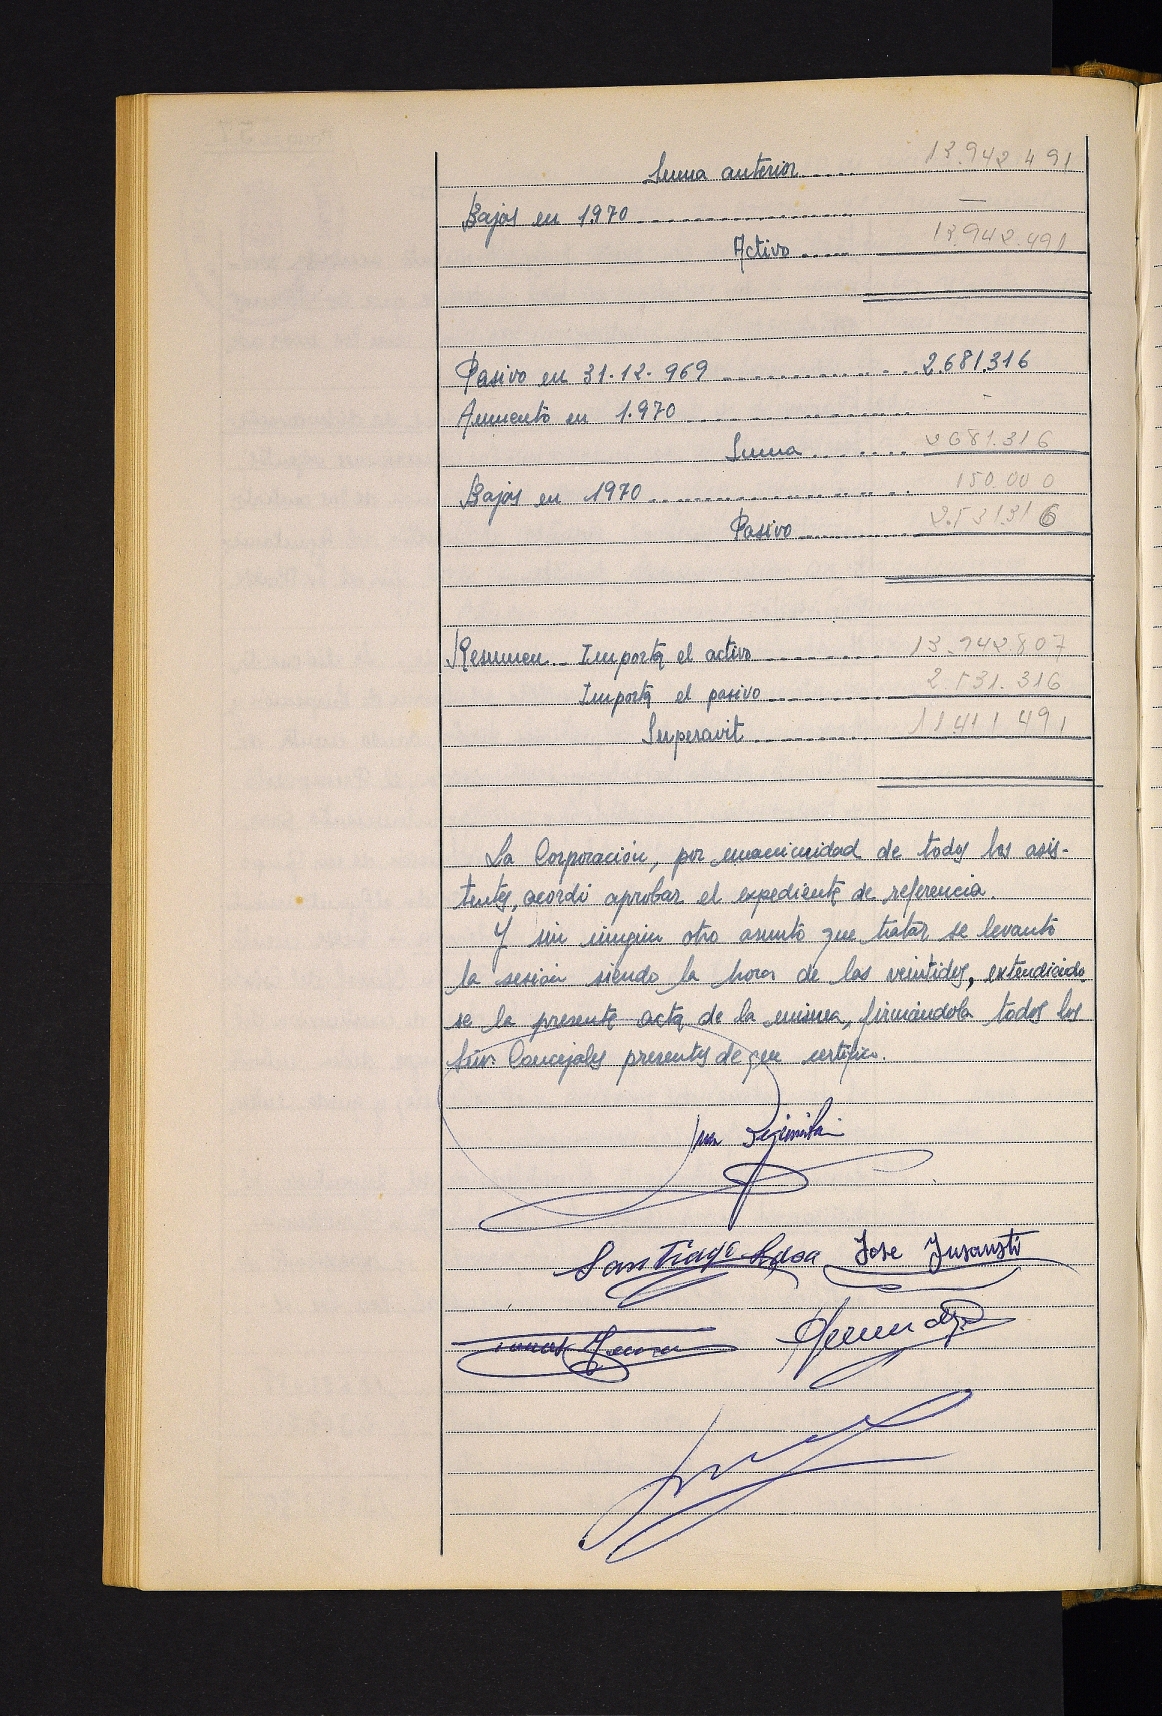 Suma anterior ..... 13.942.491
Bajas en 1970 .................... —
Activo ..... 13.942.491
Pasivo en 31-12-969 .................... 2.681.316
Aumento en 1.970 .................... -
Suma ....... 2.681.316
Bajas en 1970 .................... 150.000
Pasivo .......... 2.531.316
Resumen.. Importa el activo .......... 13.942.807
Importa el pasivo .......... 2.531.316
Superavit .......... 11.411.491
La Corporación, por unanimidad de todos los asis-
tentes, acordó aprobar el expediente de referencia.
Y sin ningún otro asunto que tratar se levantó
la sesión siendo la hora de las veintidos, extendiendo-
se la presente acta de la misma, firmándola todos los
Sres. Concejales presentes de que certifico.
Santiago Jose Insausti